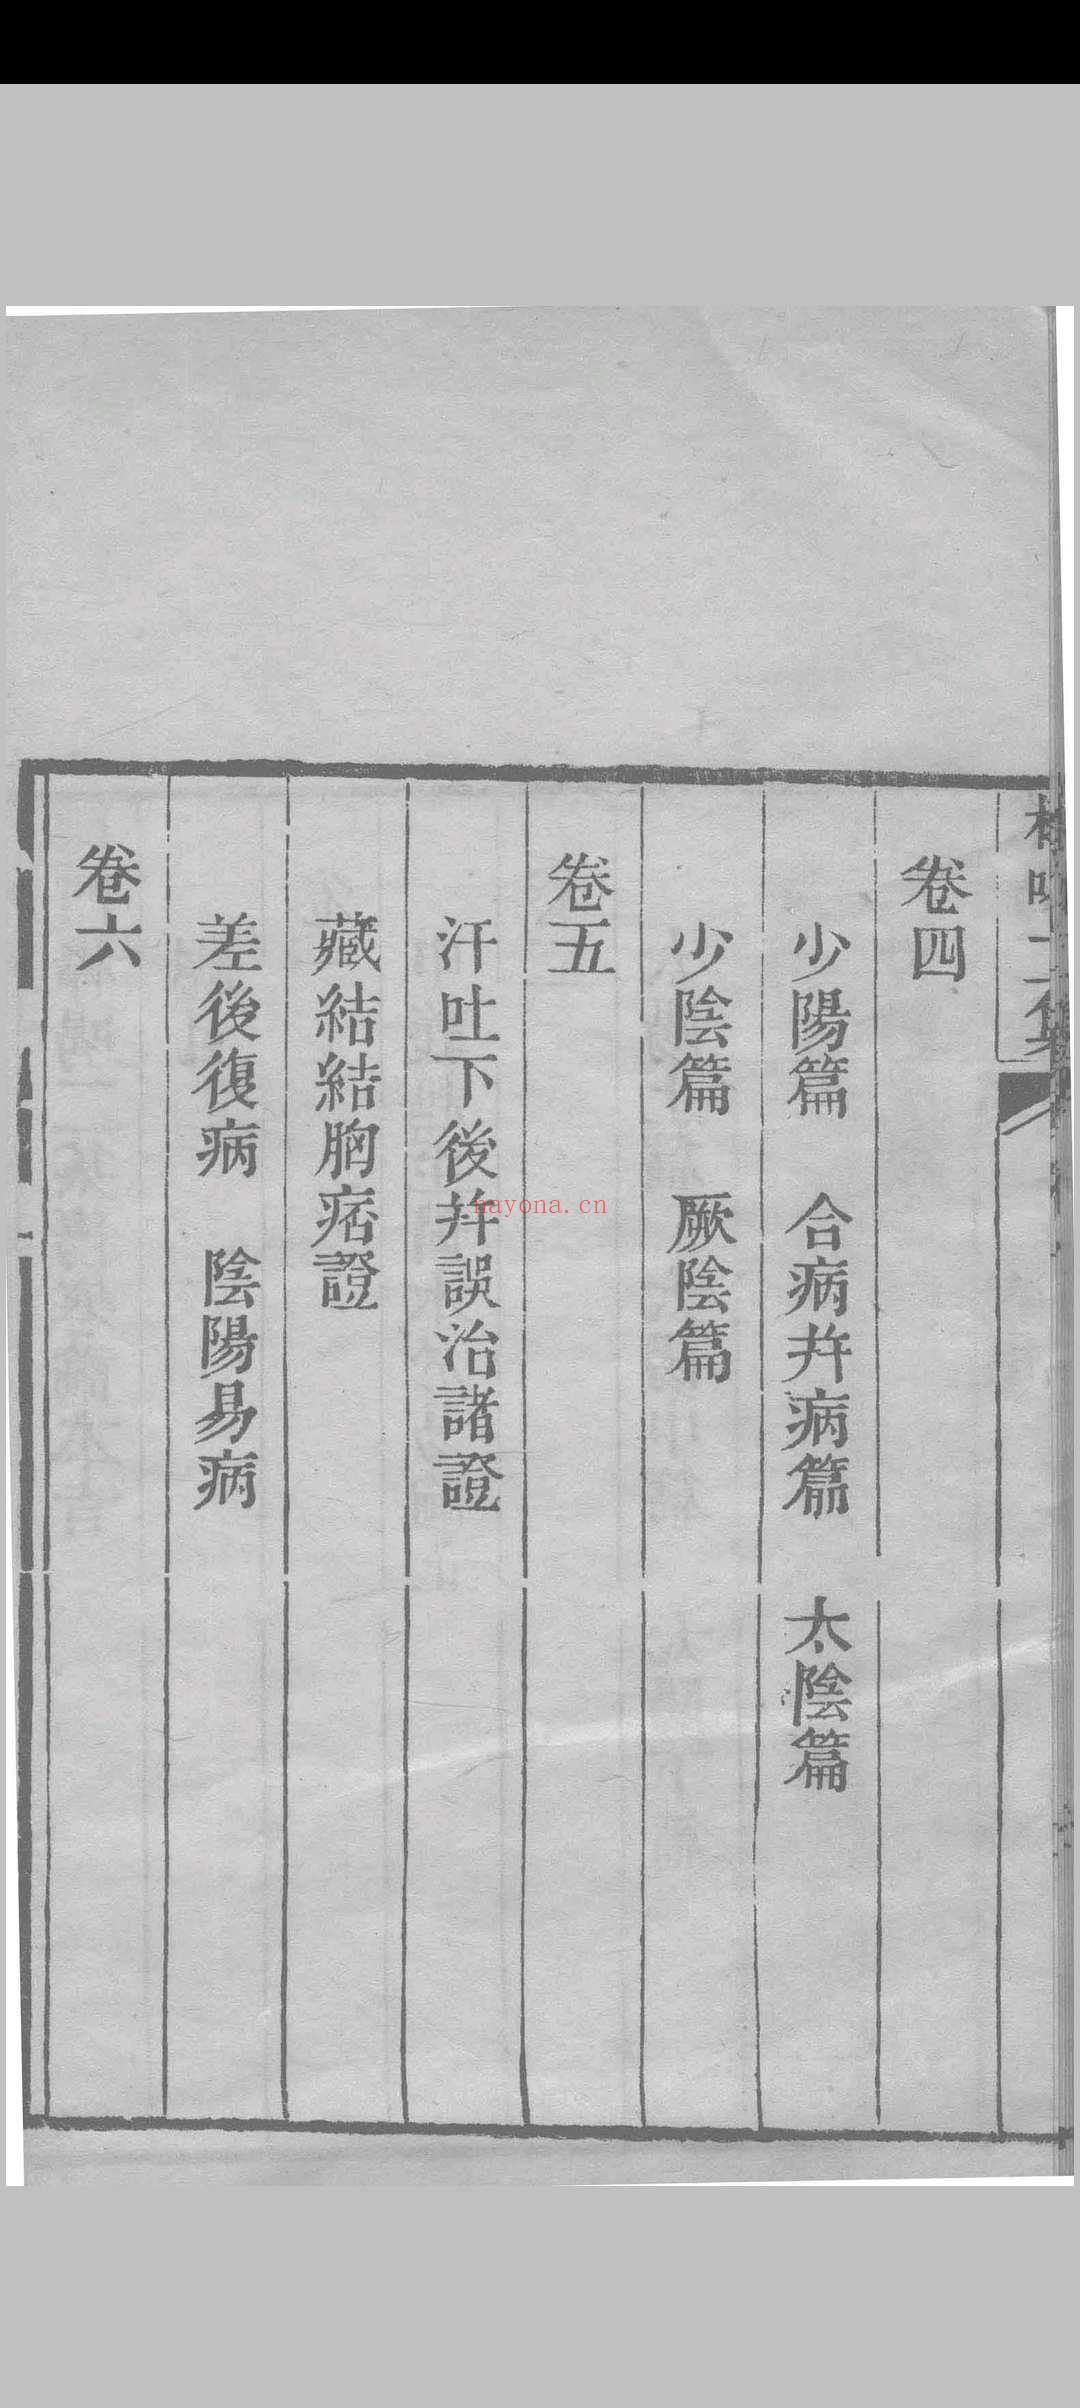 卷四
少陽篇　合病幷病篇　太陰篇
少陰篇　厥陰篇
卷五
汗吐下後幷誤治諸證
藏結結胸痞證
差後復病　陰陽易病
卷六
nayona.cn